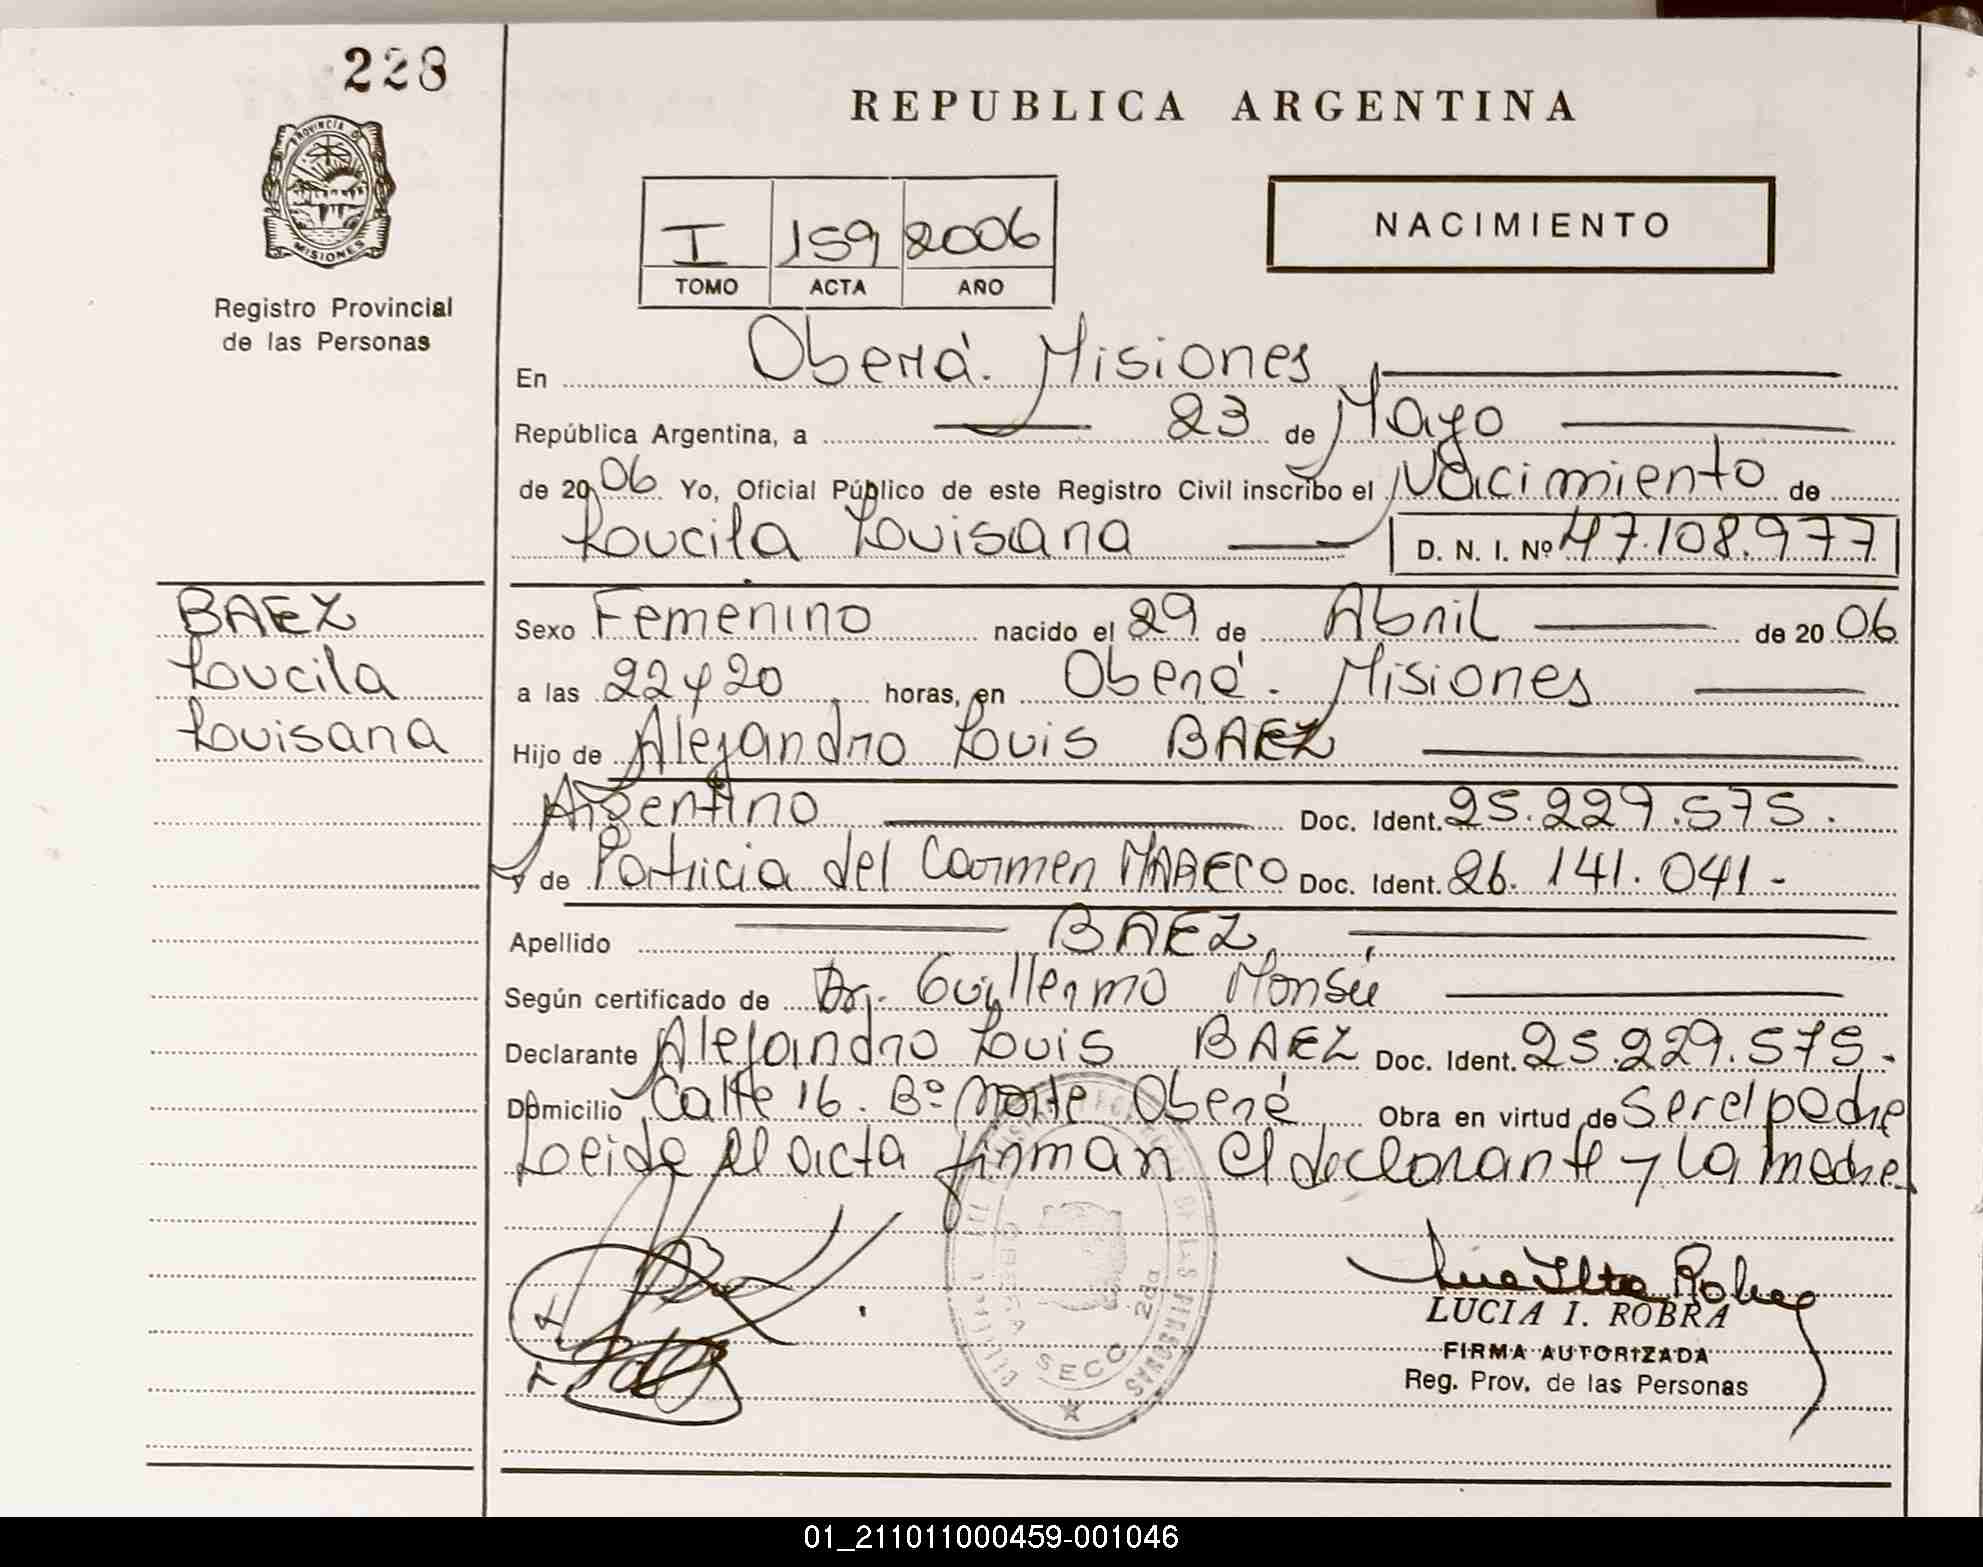 228
REPUBLICA ARGENTINA
PROVINCIA DE
MISIONES
Registro Provincial
de las Personas
I 159 2006
TOMO ACTA AÑO
NACIMIENTO
En Oberá. Misiones
República Argentina, a 23 de Mayo
de 2006 Yo, Oficial Público de este Registro Civil inscribo el Nacimiento de
Loucila Louisana D. N. I. Nº 47.108.977
BAEZ
Loucila
Louisana
Sexo Femenino nacido el 29 de Abril de 2006
a las 22 y 20 horas, en Oberá. Misiones
Hijo de Alejandro Louis BAEZ
Argentino Doc. Ident. 25.229.575.
y de Patricia del Carmen MARECO Doc. Ident. 26.141.041-
Apellido BAEZ
Según certificado de Dr. Guillermo Monsú
Declarante Alejandro Louis BAEZ Doc. Ident. 25.229.575.-
Domicilio Calle 16. Bº Norte Oberá Obra en virtud de ser el padre
Leida el acta firman el declarante y la madre
OBERA SECC 2da
DE LAS PERSONAS
LUCIA I. ROBRA
FIRMA AUTORIZADA
Reg. Prov. de las Personas
01_211011000459-001046